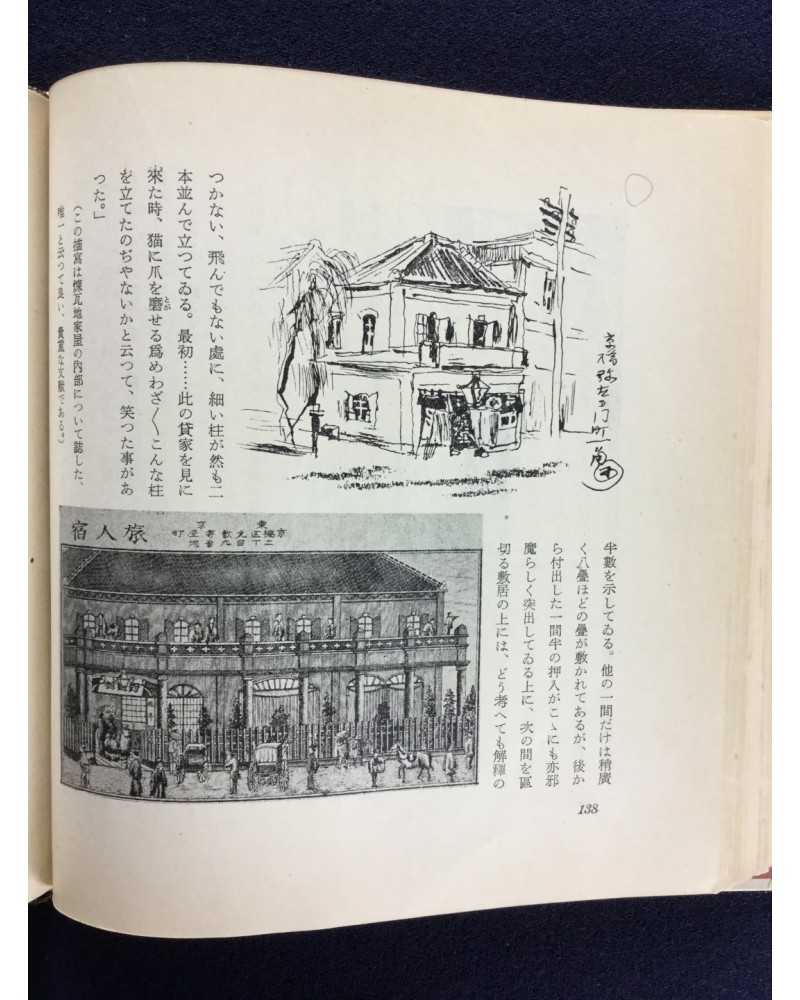 半數を示してゐる。他の一間だけは稍廣
く八疊ほどの疊が敷かれてあるが、後か
ら付出した一間半の押入がこゝにも亦邪
魔らしく突出してゐる上に、次の間を區
切る敷居の上には、どう考へても解釋の
つかない、飛んでもない處に、細い柱が然も二
本並んで立つてゐる。最初……此の貸家を見に
來た時、猫に爪を磨せる爲めわざ〱こんな柱
を立てたのぢやないかと云つて、笑つた事があ
つた。」
(この描寫は煉瓦地家屋の內部について誌した、
唯一と云つて良い、貴重な文獻である。)
京橋弥左ヱ門町
旅人宿
東京
京橋區元數寄屋町
二丁目九番地
138